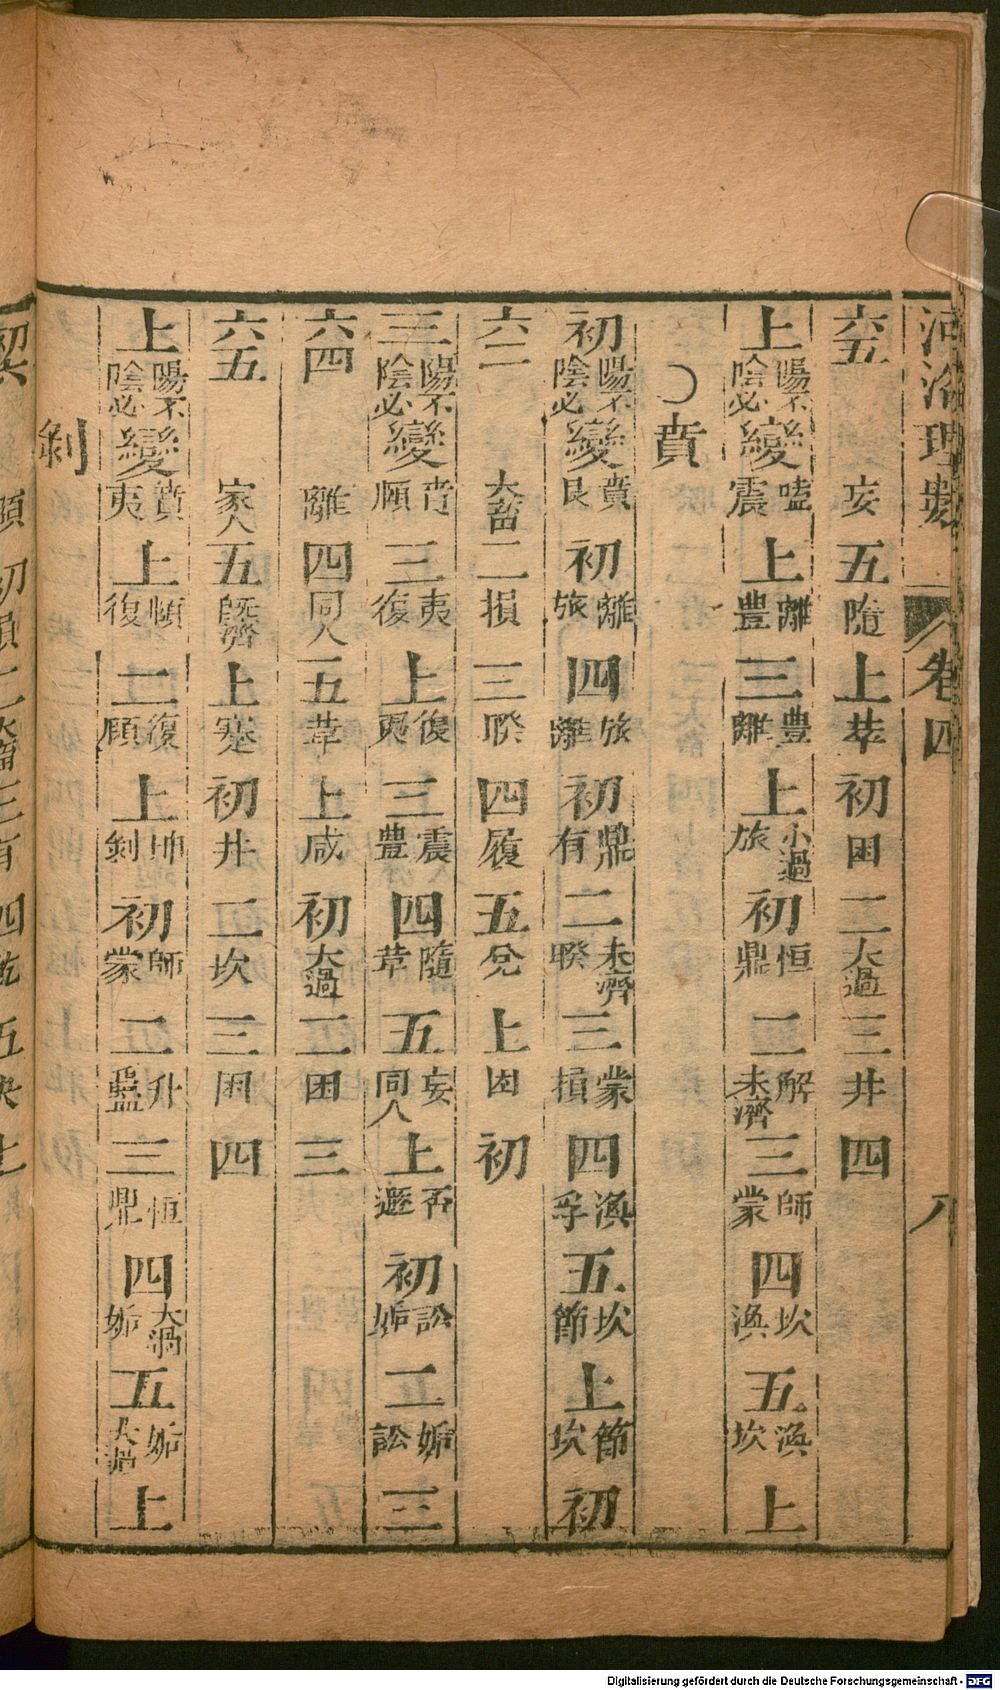 河洛理數 卷四 八
六五 妄 五 隨 上 萃 初 困 二 大過 三 井 四
上 陽不陰必 變 嗑震 上 離豊 三 豊離 上 小過旅 初 恒鼎 二 解未濟 三 師蒙 四 坎渙 五 渙坎 上
○賁
初 陽不陰必 變 賁艮 初 離旅 四 旅離 初 鼎有 二 未濟睽 三 蒙損 四 渙孚 五 坎節 上 節坎 初
六二 大畜 二 損 三 睽 四 履 五 兌 上 困 初
三 陽不陰必 變 賁頤 三 夷復 上 復夷 三 震豊 四 隨革 五 妄同人 上 否遯 初 訟姤 二 姤訟 三
六四 離 四 同人 五 革 上 咸 初 大過 二 困 三
六五 家人 五 既濟 上 蹇 初 井 二 坎 三 困 四
上 陽不陰必 變 賁夷 上 頤復 二 復頤 上 坤剝 初 師蒙 二 升蠱 三 恒鼎 四 大過姤 五 姤大過 上
剝
頤 初 損 二 大畜 三 有 四 乾 五 夬 上
Digitalisierung gefördert durch die Deutsche Forschungsgemeinschaft - DFG